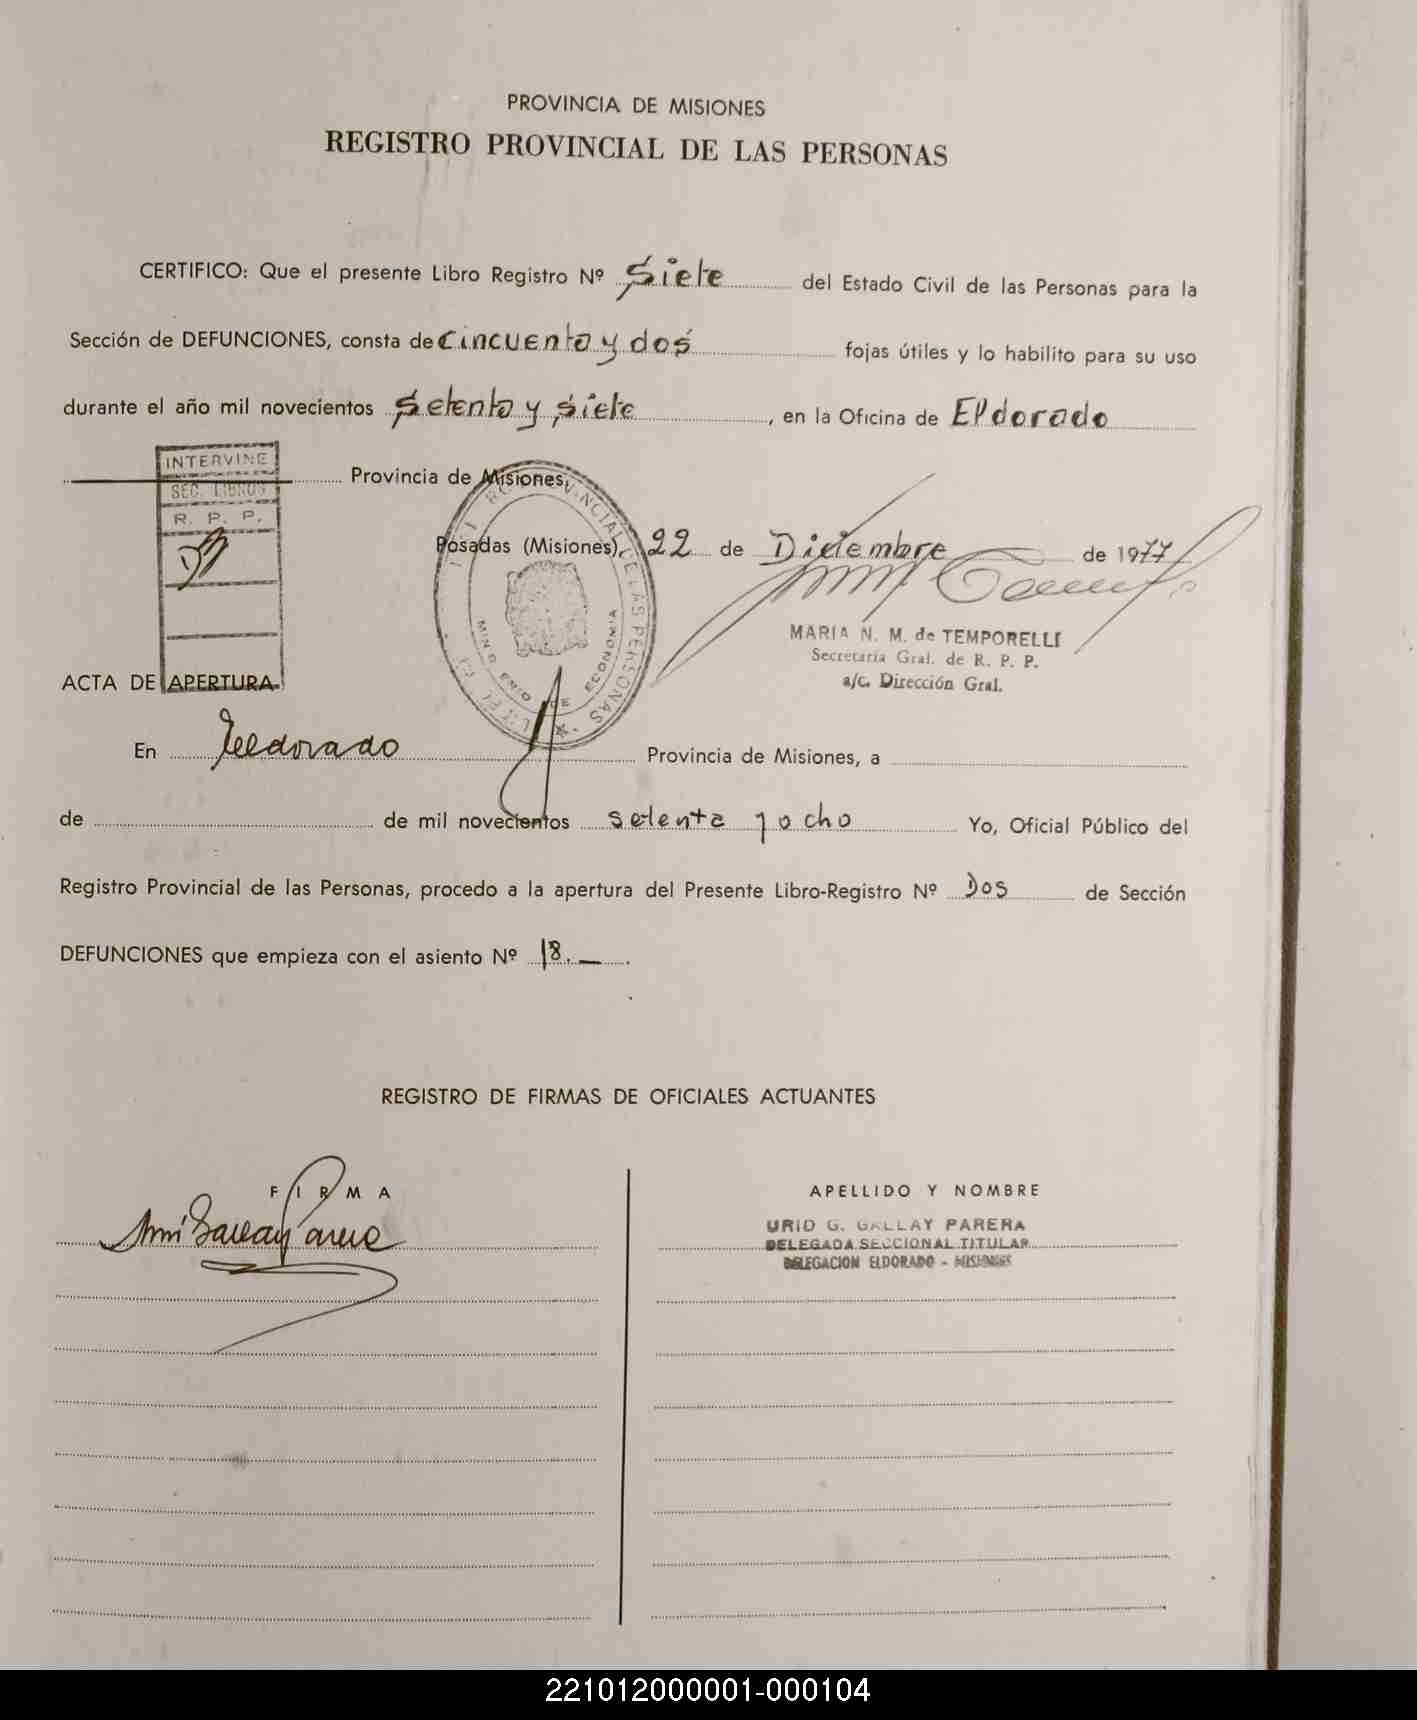 PROVINCIA DE MISIONES
REGISTRO PROVINCIAL DE LAS PERSONAS
CERTIFICO: Que el presente Libro Registro Nº Siete del Estado Civil de las Personas para la
Sección de DEFUNCIONES, consta de cincuenta y dos fojas útiles y lo habilito para su uso
durante el año mil novecientos setenta y siete, en la Oficina de Eldorado
Provincia de Misiones,
INTERVINE
SEC. LIBROS
R. P. P.
Posadas (Misiones), 22 de Diciembre de 1977
REGISTRO PROVINCIAL DE LAS PERSONAS
MINISTERIO DE ECONOMIA
MARIA N. M. de TEMPORELLI
Secretaria Gral. de R. P. P.
a/c. Dirección Gral.
ACTA DE APERTURA
En Eldorado Provincia de Misiones, a
de de mil novecientos setenta y ocho Yo, Oficial Público del
Registro Provincial de las Personas, procedo a la apertura del Presente Libro-Registro Nº Dos de Sección
DEFUNCIONES que empieza con el asiento Nº 18. _ .
REGISTRO DE FIRMAS DE OFICIALES ACTUANTES
FIRMA APELLIDO Y NOMBRE
Gallay Parera URID G. GALLAY PARERA
DELEGADA SECCIONAL TITULAR
DELEGACION ELDORADO - MISIONES
221012000001-000104